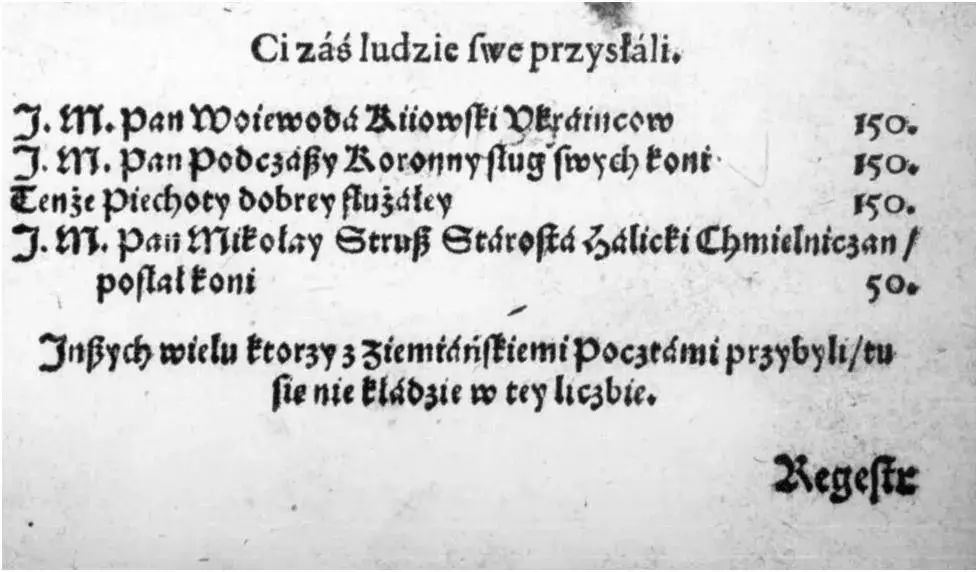 Ci záś ludzie ſwe przysłáli.
J. M. Pan Woiewodá Kiiowſki Vkráincow 150.
J. M. Pan Podczáßy Koronny ſług ſwych koni 150.
Tenże Piechoty dobrey ſlużáłey 150.
J. M. Pan Mikołay Struß Stároſtá Hálicki Chmielniczan /
poſlał koni 50.
Jnßych wielu ktorzy z Ziemiáńſkiemi Pocztámi przybyli / tu
ſie nie kłádzie w tey liczbie.
Regeſtr